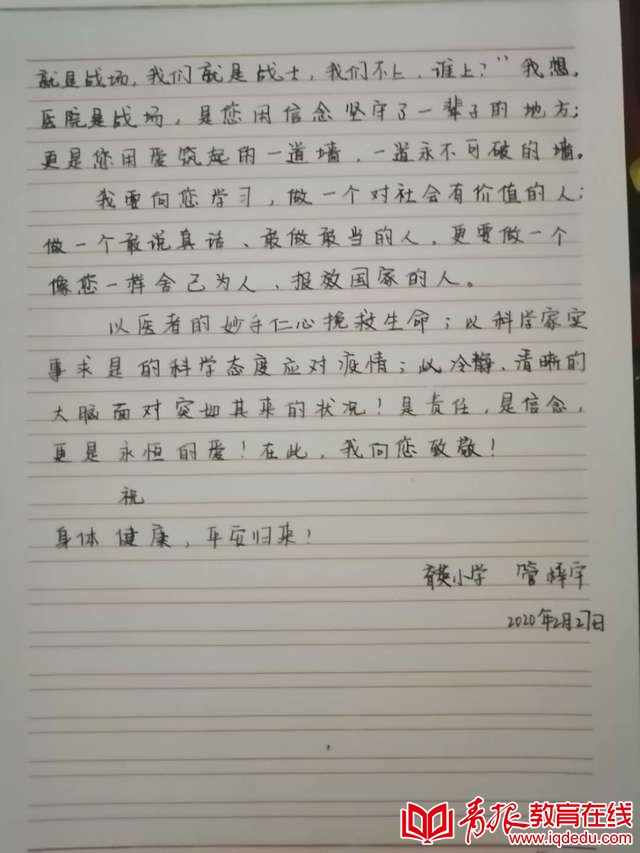 就是战场,我们就是战士,我们不上,谁上?”我想,
医院是战场,是您用信念坚守了一辈子的地方;
更是您用爱筑起的一道墙,一道永不可破的墙。
我要向您学习,做一个对社会有价值的人;
做一个敢说真话、敢做敢当的人,更要做一个
像您一样舍己为人、报效国家的人。
以医者的妙手仁心挽救生命;以科学家实
事求是的科学态度应对疫情;以冷静、清晰的
大脑面对突如其来的状况!是责任,是信念,
更是永恒的爱!在此,我向您致敬!
祝
身体健康,平安归来!
育英小学 管梓宇
2020年2月27日
青报教育在线
www.iqdedu.com